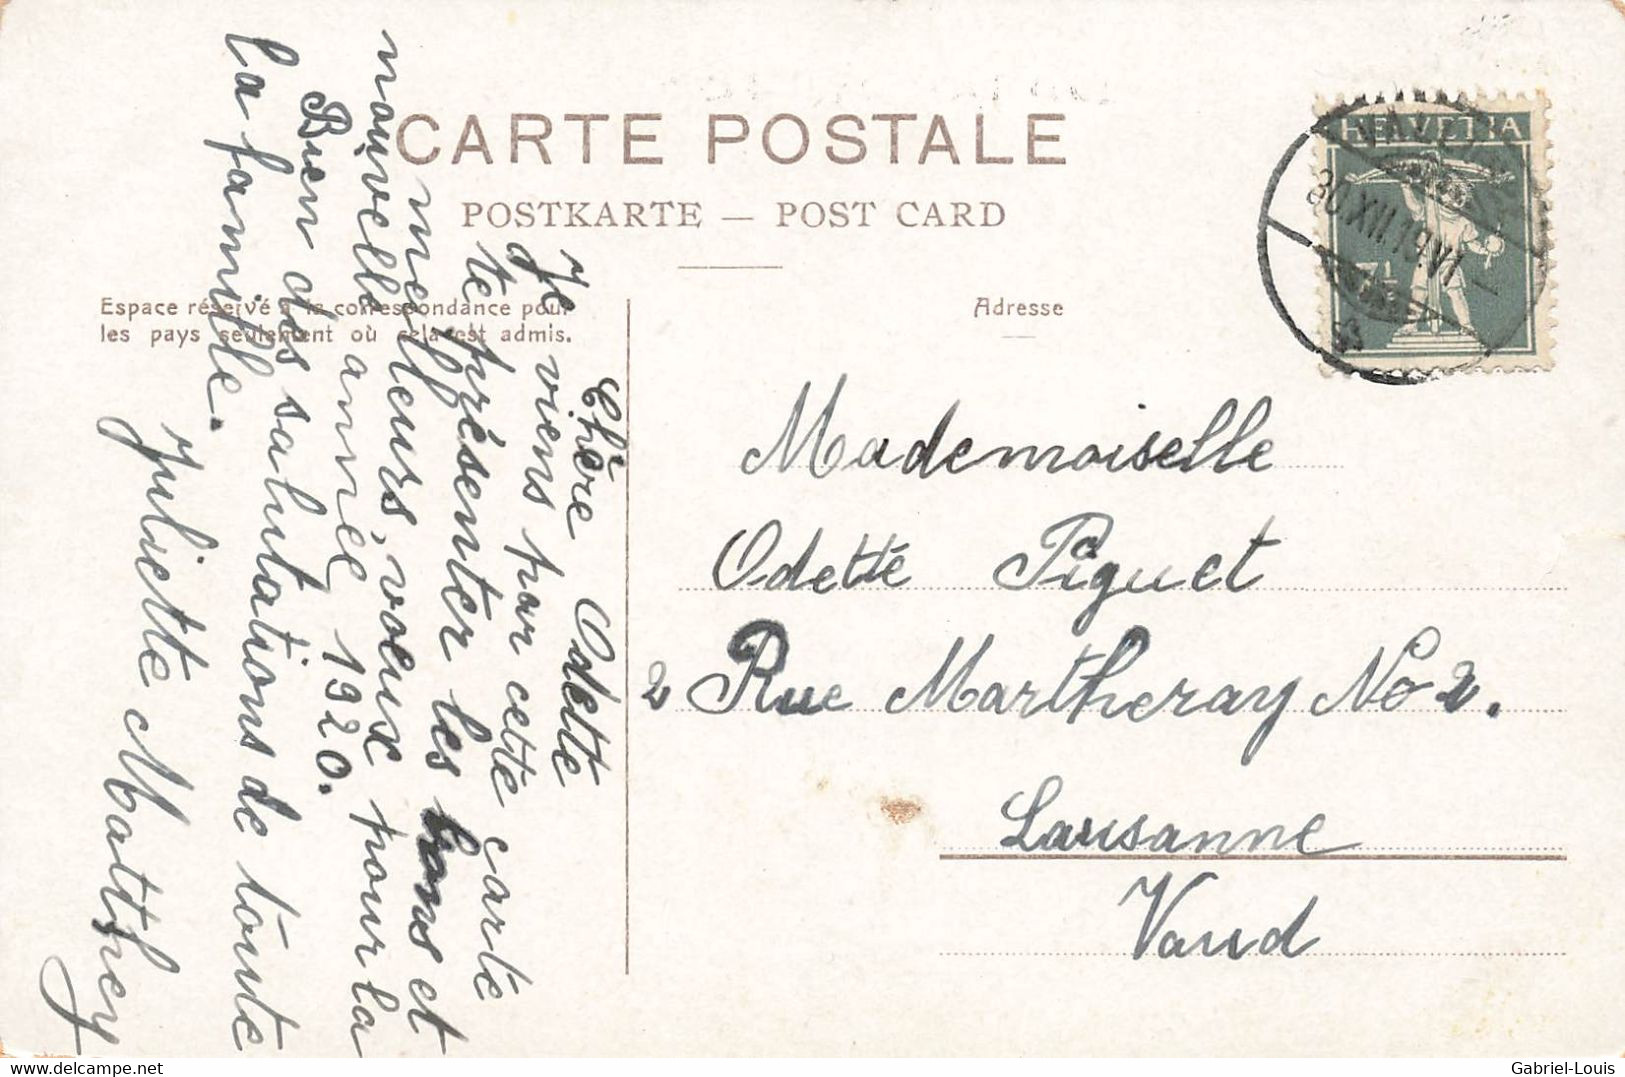 CARTE POSTALE
POSTKARTE — POST CARD
Espace réservé à la correspondance pour
les pays seulement où cela est admis.
Adresse
HELVETIA
7½
30.XII.19.VI
Chère Odette
Je viens par cette carte
te présenter les bons et
meilleurs, voeux pour la
nouvelle année 1920.
Bien des salutations de toute
la famille.
Juliette Matthey
Mademoiselle
Odette Piguet
2 Rue Martheray No 2.
Lausanne
Vaud
delcampe.net
Gabriel-Louis